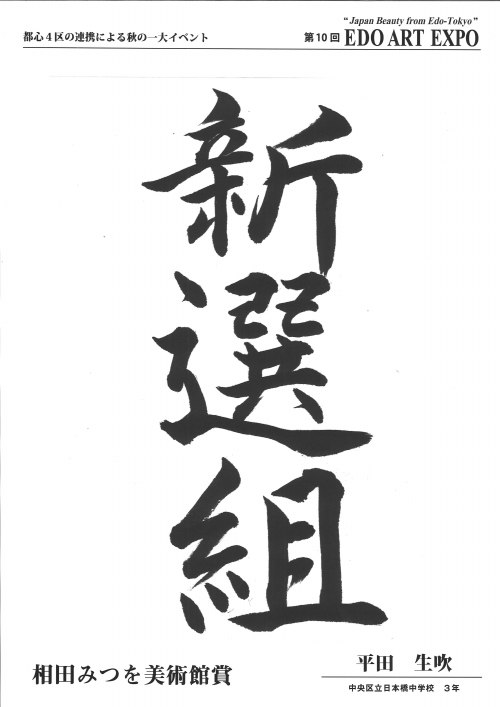 都心4区の連携による秋の一大イベント
"Japan Beauty from Edo-Tokyo"
第10回 EDO ART EXPO
新選組
相田みつを美術館賞
平田 生吹
中央区立日本橋中学校 3年